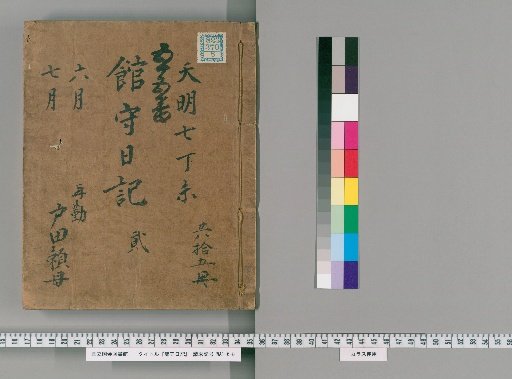 天明七丁未
共拾五冊
館守日記
貳
六月
七月
再勤
戸田頼母